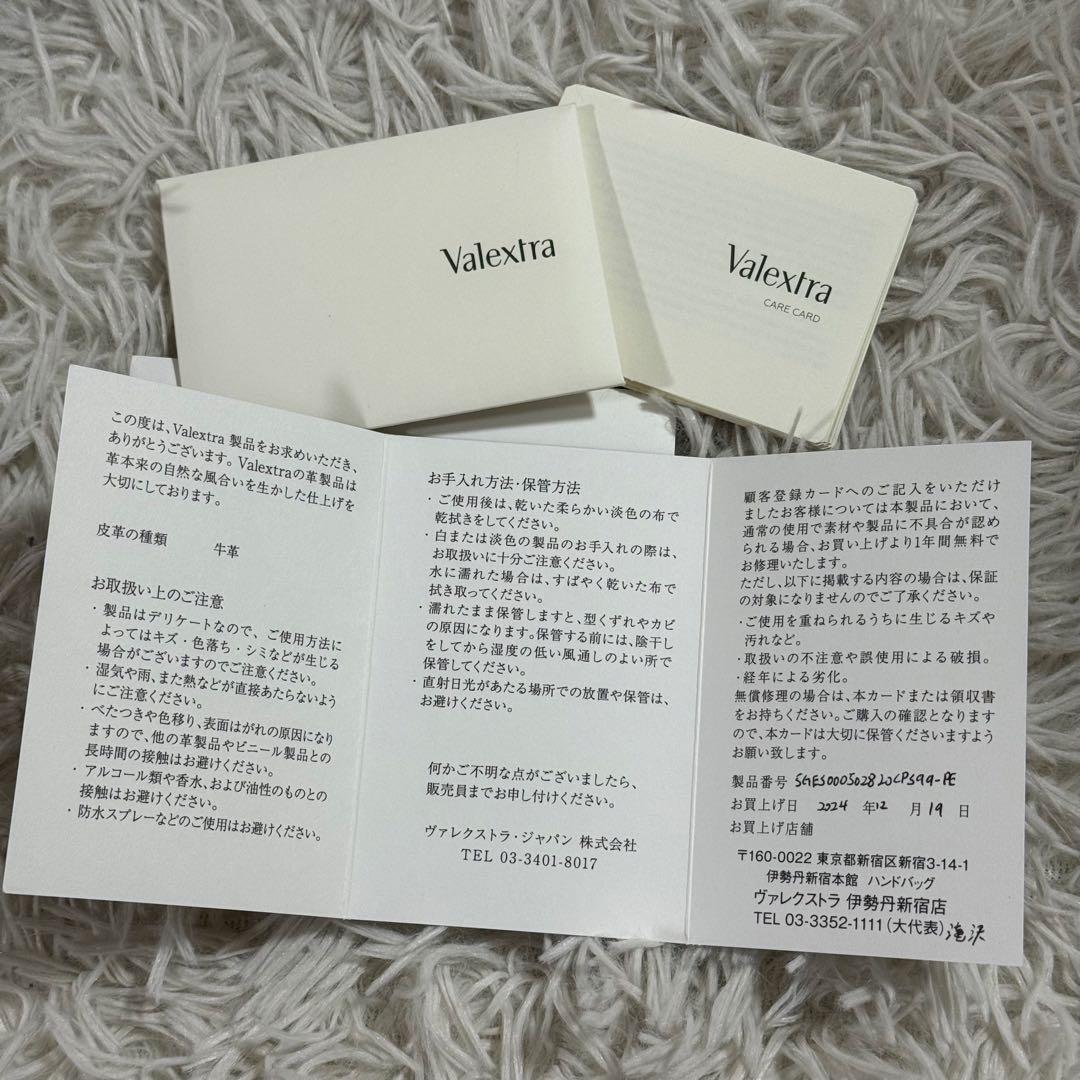 Valextra
Valextra
CARE CARD
この度は、Valextra 製品をお求めいただき、
ありがとうございます。Valextraの革製品は
革本来の自然な風合いを生かした仕上げを
大切にしております。
皮革の種類 牛革
お取扱い上のご注意
・製品はデリケートなので、ご使用方法に
よってはキズ・色落ち・シミなどが生じる
場合がございますのでご注意ください。
・湿気や雨、また熱などが直接あたらないよう
にご注意ください。
・べたつきや色移り、表面はがれの原因になり
ますので、他の革製品やビニール製品との
長時間の接触はお避けください。
・アルコール類や香水、および油性のものとの
接触はお避けください。
・防水スプレーなどのご使用はお避けください。
お手入れ方法・保管方法
・ご使用後は、乾いた柔らかい淡色の布で
乾拭きをしてください。
・白または淡色の製品のお手入れの際は、
お取扱いに十分ご注意ください。
水に濡れた場合は、すばやく乾いた布で
拭き取ってください。
・濡れたまま保管しますと、型くずれやカビ
の原因になります。保管する前には、陰干し
をしてから湿度の低い風通しのよい所で
保管してください。
・直射日光があたる場所での放置や保管は、
お避けください。
何かご不明な点がございましたら、
販売員までお申し付けください。
ヴァレクストラ・ジャパン 株式会社
TEL 03-3401-8017
顧客登録カードへのご記入をいただけ
ましたお客様については本製品において、
通常の使用で素材や製品に不具合が認め
られる場合、お買い上げより1年間無料で
お修理いたします。
ただし、以下に掲載する内容の場合は、保証
の対象になりませんのでご了承ください。
・ご使用を重ねられるうちに生じるキズや
汚れなど。
・取扱いの不注意や誤使用による破損。
・経年による劣化。
無償修理の場合は、本カードまたは領収書
をお持ちください。ご購入の確認となります
ので、本カードは大切に保管くださいますよう
お願い致します。
製品番号 SGES0005028LOCPS99-PE
お買上げ日 2024 年12 月19 日
お買上げ店舗
〒160-0022 東京都新宿区新宿3-14-1
伊勢丹新宿本館 ハンドバッグ
ヴァレクストラ 伊勢丹新宿店
TEL 03-3352-1111(大代表) 滝沢